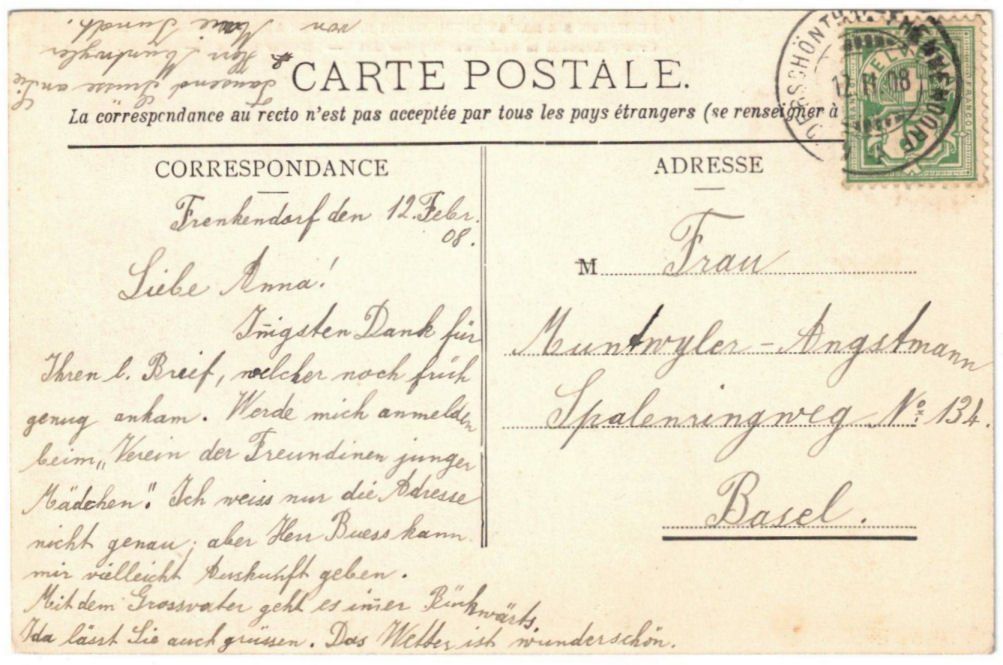 CARTE POSTALE.
La correspondance au recto n'est pas acceptée par tous les pays étrangers (se renseigner à
CORRESPONDANCE
Frenkendorf den 12. Febr.
08.
Liebe Anna!
Iñigsten Dank für
Ihren l. Breif, welcher noch früh
genug ankam. Werde mich anmelden
beim „Verein der Freundinen junger
Mädchen". Ich weiss nur die Adresse
nicht genau; aber Herr Buess kann
mir vielleicht Auskunft geben.
Mit dem Grossvater geht es im̄er Rückwärts.
Ida lässt Sie auch grüssen. Das Wetter ist wunderschön.
Tausend Grüsse an Sie
Hrn Muntwyler
von
ADRESSE
M Frau
Muntwyler-Angstmann
Spalenringweg No 134.
Basel.
12. II. 08
HELVETIA
FRANCO